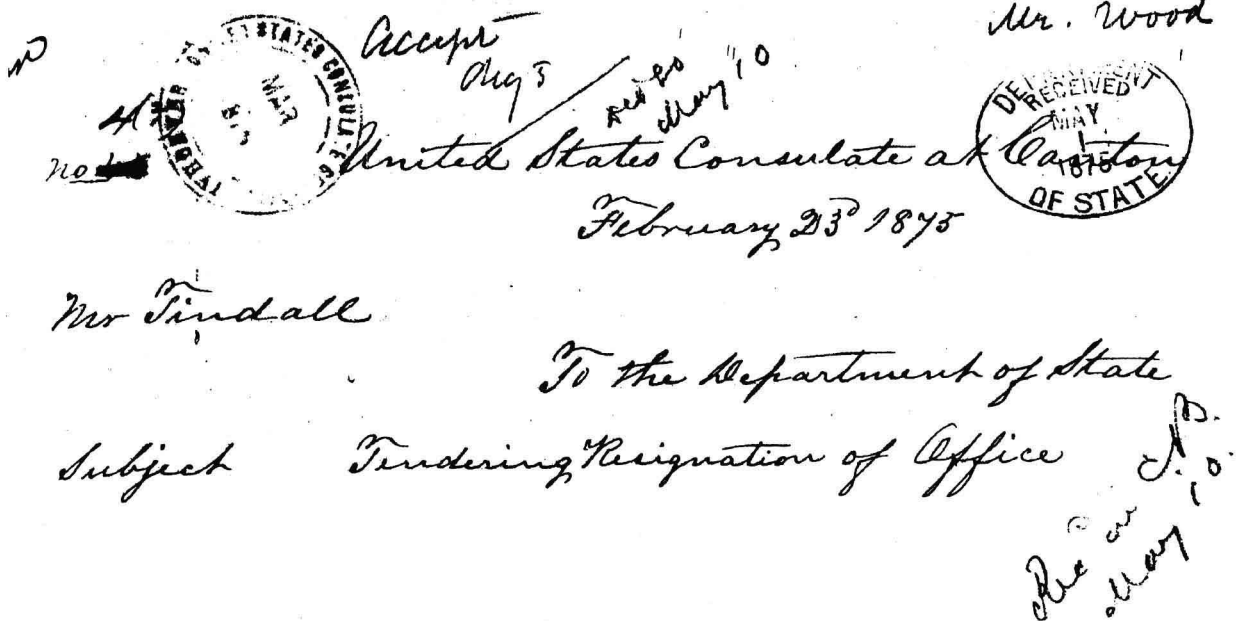 Mr. Wood
Accept
UNITED STATES CONSULATE
MAR
May 10
DEPARTMENT
RECEIVED
MAY
1
1875
OF STATE
No 4
United States Consulate at Canton
February 23d 1875
Mr Tindall
To the Department of State
Subject Tendering Resignation of Office
May 10.